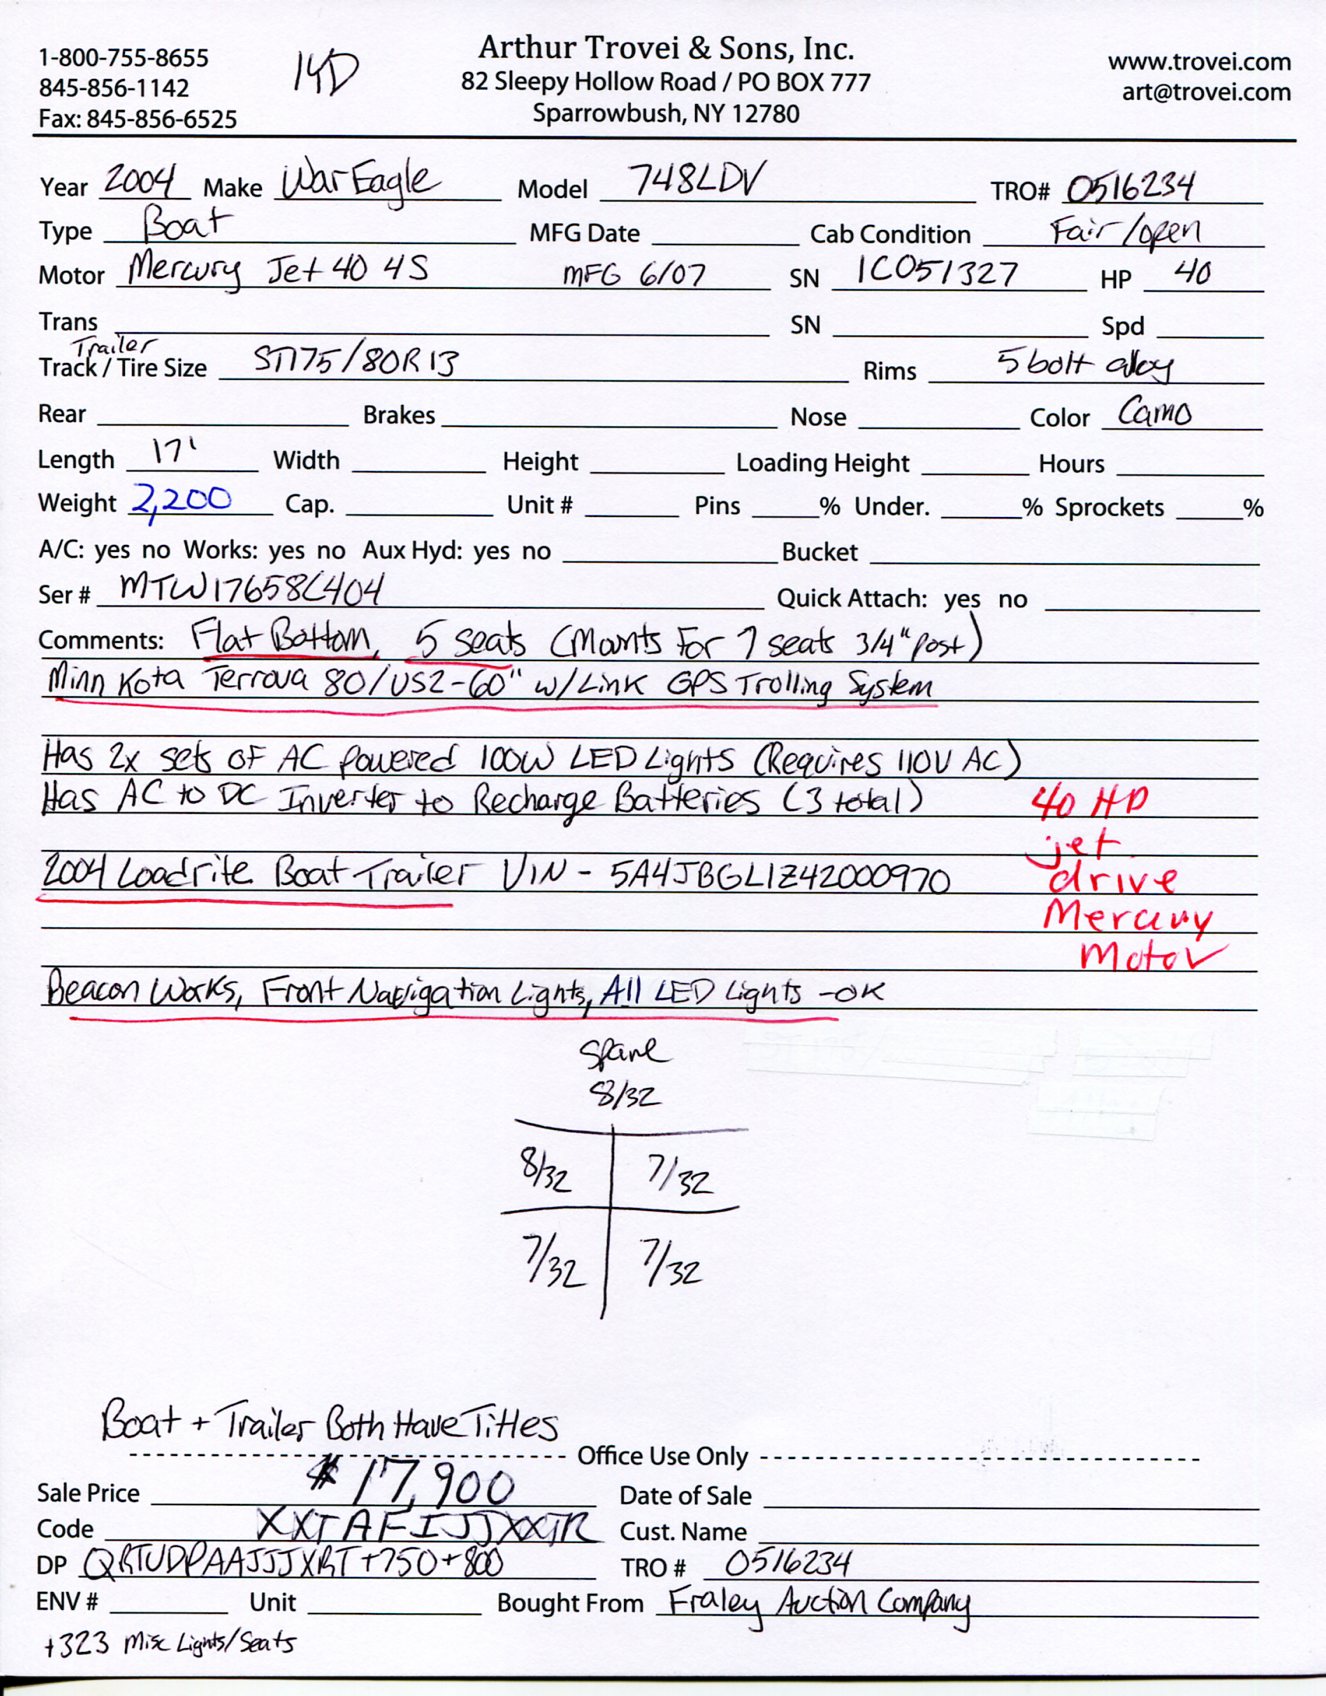 1-800-755-8655
845-856-1142
Fax: 845-856-6525
14D
Arthur Trovei & Sons, Inc.
82 Sleepy Hollow Road / PO BOX 777
Sparrowbush, NY 12780
www.trovei.com
art@trovei.com
Year 2004 Make War Eagle Model 748LDV TRO# 0516234
Type Boat MFG Date Cab Condition Fair/open
Motor Mercury Jet 40 4S MFG 6/07 SN 1C051327 HP 40
Trans SN Spd
Trailer
Track / Tire Size ST175/80R13 Rims 5 bolt alloy
Rear Brakes Nose Color Camo
Length 17' Width Height Loading Height Hours
Weight 2,200 Cap. Unit # Pins % Under. % Sprockets %
A/C: yes no Works: yes no Aux Hyd: yes no Bucket
Ser # MTW17658C404 Quick Attach: yes no
Comments: Flat Bottom, 5 seats (Mounts For 7 seats 3/4" post)
Minn Kota Terrova 80/US2-60" w/Link GPS Trolling System
Has 2x sets of AC powered 100W LED Lights (Requires 110V AC)
Has AC to DC Inverter to Recharge Batteries (3 total)
40 HP
jet
drive
Mercury
Motor
2004 Loadrite Boat Trailer VIN - 5A4JBGL1Z42000970
Beacon Works, Front Navigation Lights, All LED Lights -OK
Spare
8/32
8/32 7/32
7/32 7/32
Boat + Trailer Both Have Titles
Office Use Only
Sale Price $17,900 Date of Sale
Code XXTAFIJJXXTR Cust. Name
DP QRTUDPAAJJJXRT+750+800 TRO # 0516234
ENV # Unit Bought From Fraley Auction Company
+323 Misc Lights/Seats